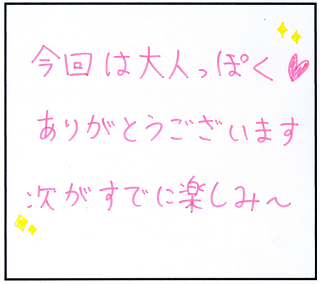 今回は大人っぽく
ありがとうございます
次がすでに楽しみ〜